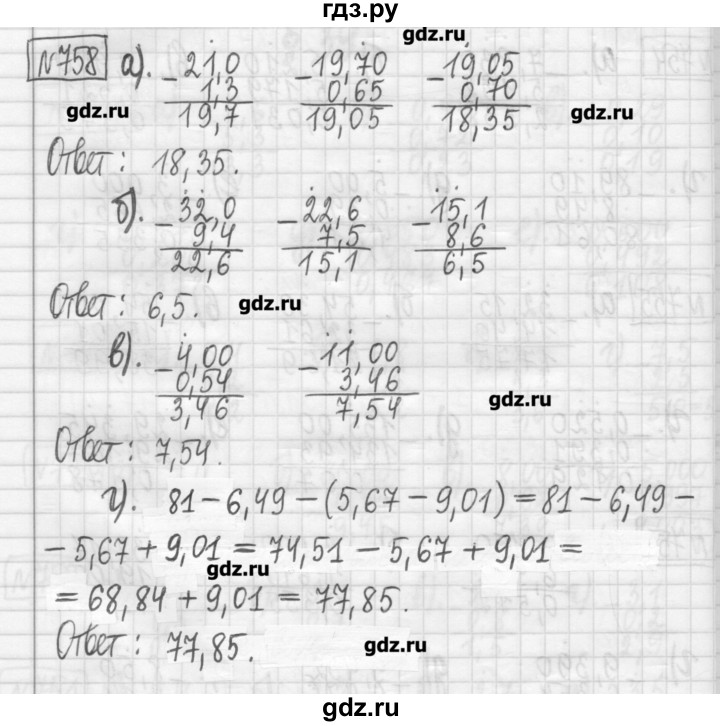 гдз.ру
№758 а). -21,0 -19,70 -19,05
1,3 0,65 0,70
19,7 19,05 18,35
gdz.ru
gdz.ru
gdz.ru
Ответ: 18,35.
б). -32,0 -22,6 -15,1
9,4 7,5 8,6
22,6 15,1 6,5
Ответ: 6,5.
gdz.ru
в). -4,00 -11,00
0,54 3,46
3,46 7,54
gdz.ru
Ответ: 7,54.
г). 81 - 6,49 - (5,67 - 9,01) = 81 - 6,49 -
- 5,67 + 9,01 = 74,51 - 5,67 + 9,01 =
gdz.ru
= 68,84 + 9,01 = 77,85.
Ответ: 77,85.
gdz.ru
gdz.ru